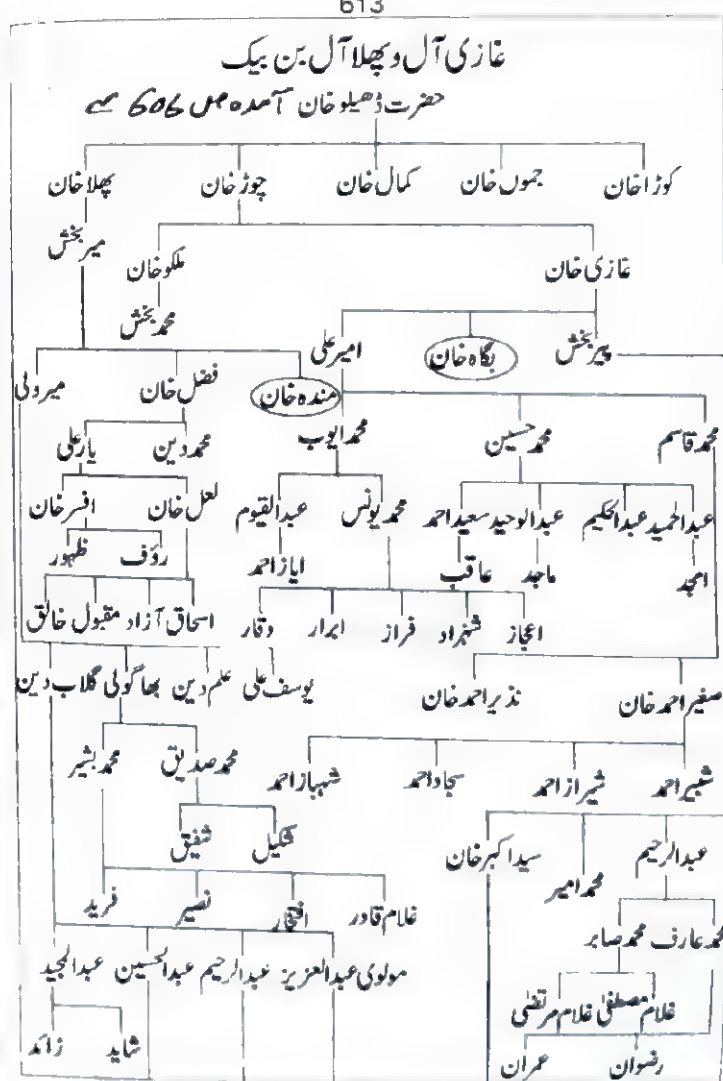 613
غازی آل و پھلا آل بن بیک
حضرت ڈھیلو خان آمدہ ص 606 سے
کوڑا خان جموں خان کمال خان چوڑ خان پھلا خان
میر بخش
غازی خان ملکو خان
محمد بخش
پیر بخش بگاہ خان امیر علی
مندہ خان فضل خان میر ولی
محمد قاسم محمد حسین محمد ایوب محمد دین یار علی
لعل خان افسر خان
عبدالحمید عبدالحکیم عبدالوحید سعید احمد محمد یونس عبدالقیوم
رؤف ظہور
امجد ماجد عاقب ایاز احمد
اعجاز شہزاد فراز ابرار وقار اسحاق آزاد مقبول خالق
صغیر احمد خان نذیر احمد خان یوسف علی علم دین بھاگولی گلاب دین
محمد صدیق محمد بشیر
شبیر احمد شیراز احمد سجاد احمد شہباز احمد
شکیل شفیق
عبدالرحیم محمد امیر سید اکبر خان
غلام قادر افتخار نصیر فرید
محمد عارف محمد صابر
مولوی عبدالعزیز عبدالرحیم عبدالحسین عبدالمجید
غلام مصطفی غلام مرتضی
شاہد زائد
رضوان عمران